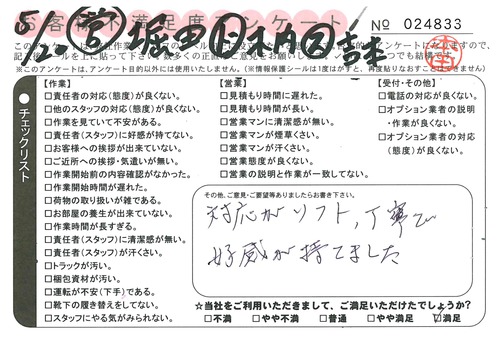 お客様不満足度アンケート
5/20 (営)堀田
№ 024833
※このアンケートは、アンケート目的以外には使用いたしません。(※情報保護シールは1度はがすと、再度貼りなおすことはできません)
チェックリスト
【作業】
□責任者の対応(態度)が良くない。
□他のスタッフの対応(態度)が良くない。
□作業を見ていて不安がある。
□責任者(スタッフ)に好感が持てない。
□お客様への挨拶が出来ていない。
□ご近所への挨拶・気遣いが無い。
□作業開始前の内容確認がなかった。
□作業開始時間が遅れた。
□荷物の取り扱いが雑である。
□お部屋の養生が出来ていない。
□作業時間が長すぎる。
□責任者(スタッフ)に清潔感が無い。
□責任者(スタッフ)が汗くさい。
□トラックが汚い。
□梱包資材が汚い。
□運転が不安(下手)である。
□靴下の履き替えをしてない。
□スタッフにやる気がみられない。
【営業】
□見積もり時間に遅れた。
□見積もり時間が長い。
□営業マンに清潔感が無い。
□営業マンが煙草くさい。
□営業マンが汗くさい。
□営業態度が良くない。
□営業の説明と作業が一致してない。
【受付・その他】
□電話の対応が良くない。
□オプション業者の説明
・作業が良くない。
□オプション業者の対応
(態度)が良くない。
その他、ご意見・ご要望等ありましたらお書き下さい。
対応がソフト、丁寧で
好感が持てました
☆当社をご利用いただきまして、ご満足いただけたでしょうか?
□不満 □やや不満 □普通 □やや満足 ☑満足